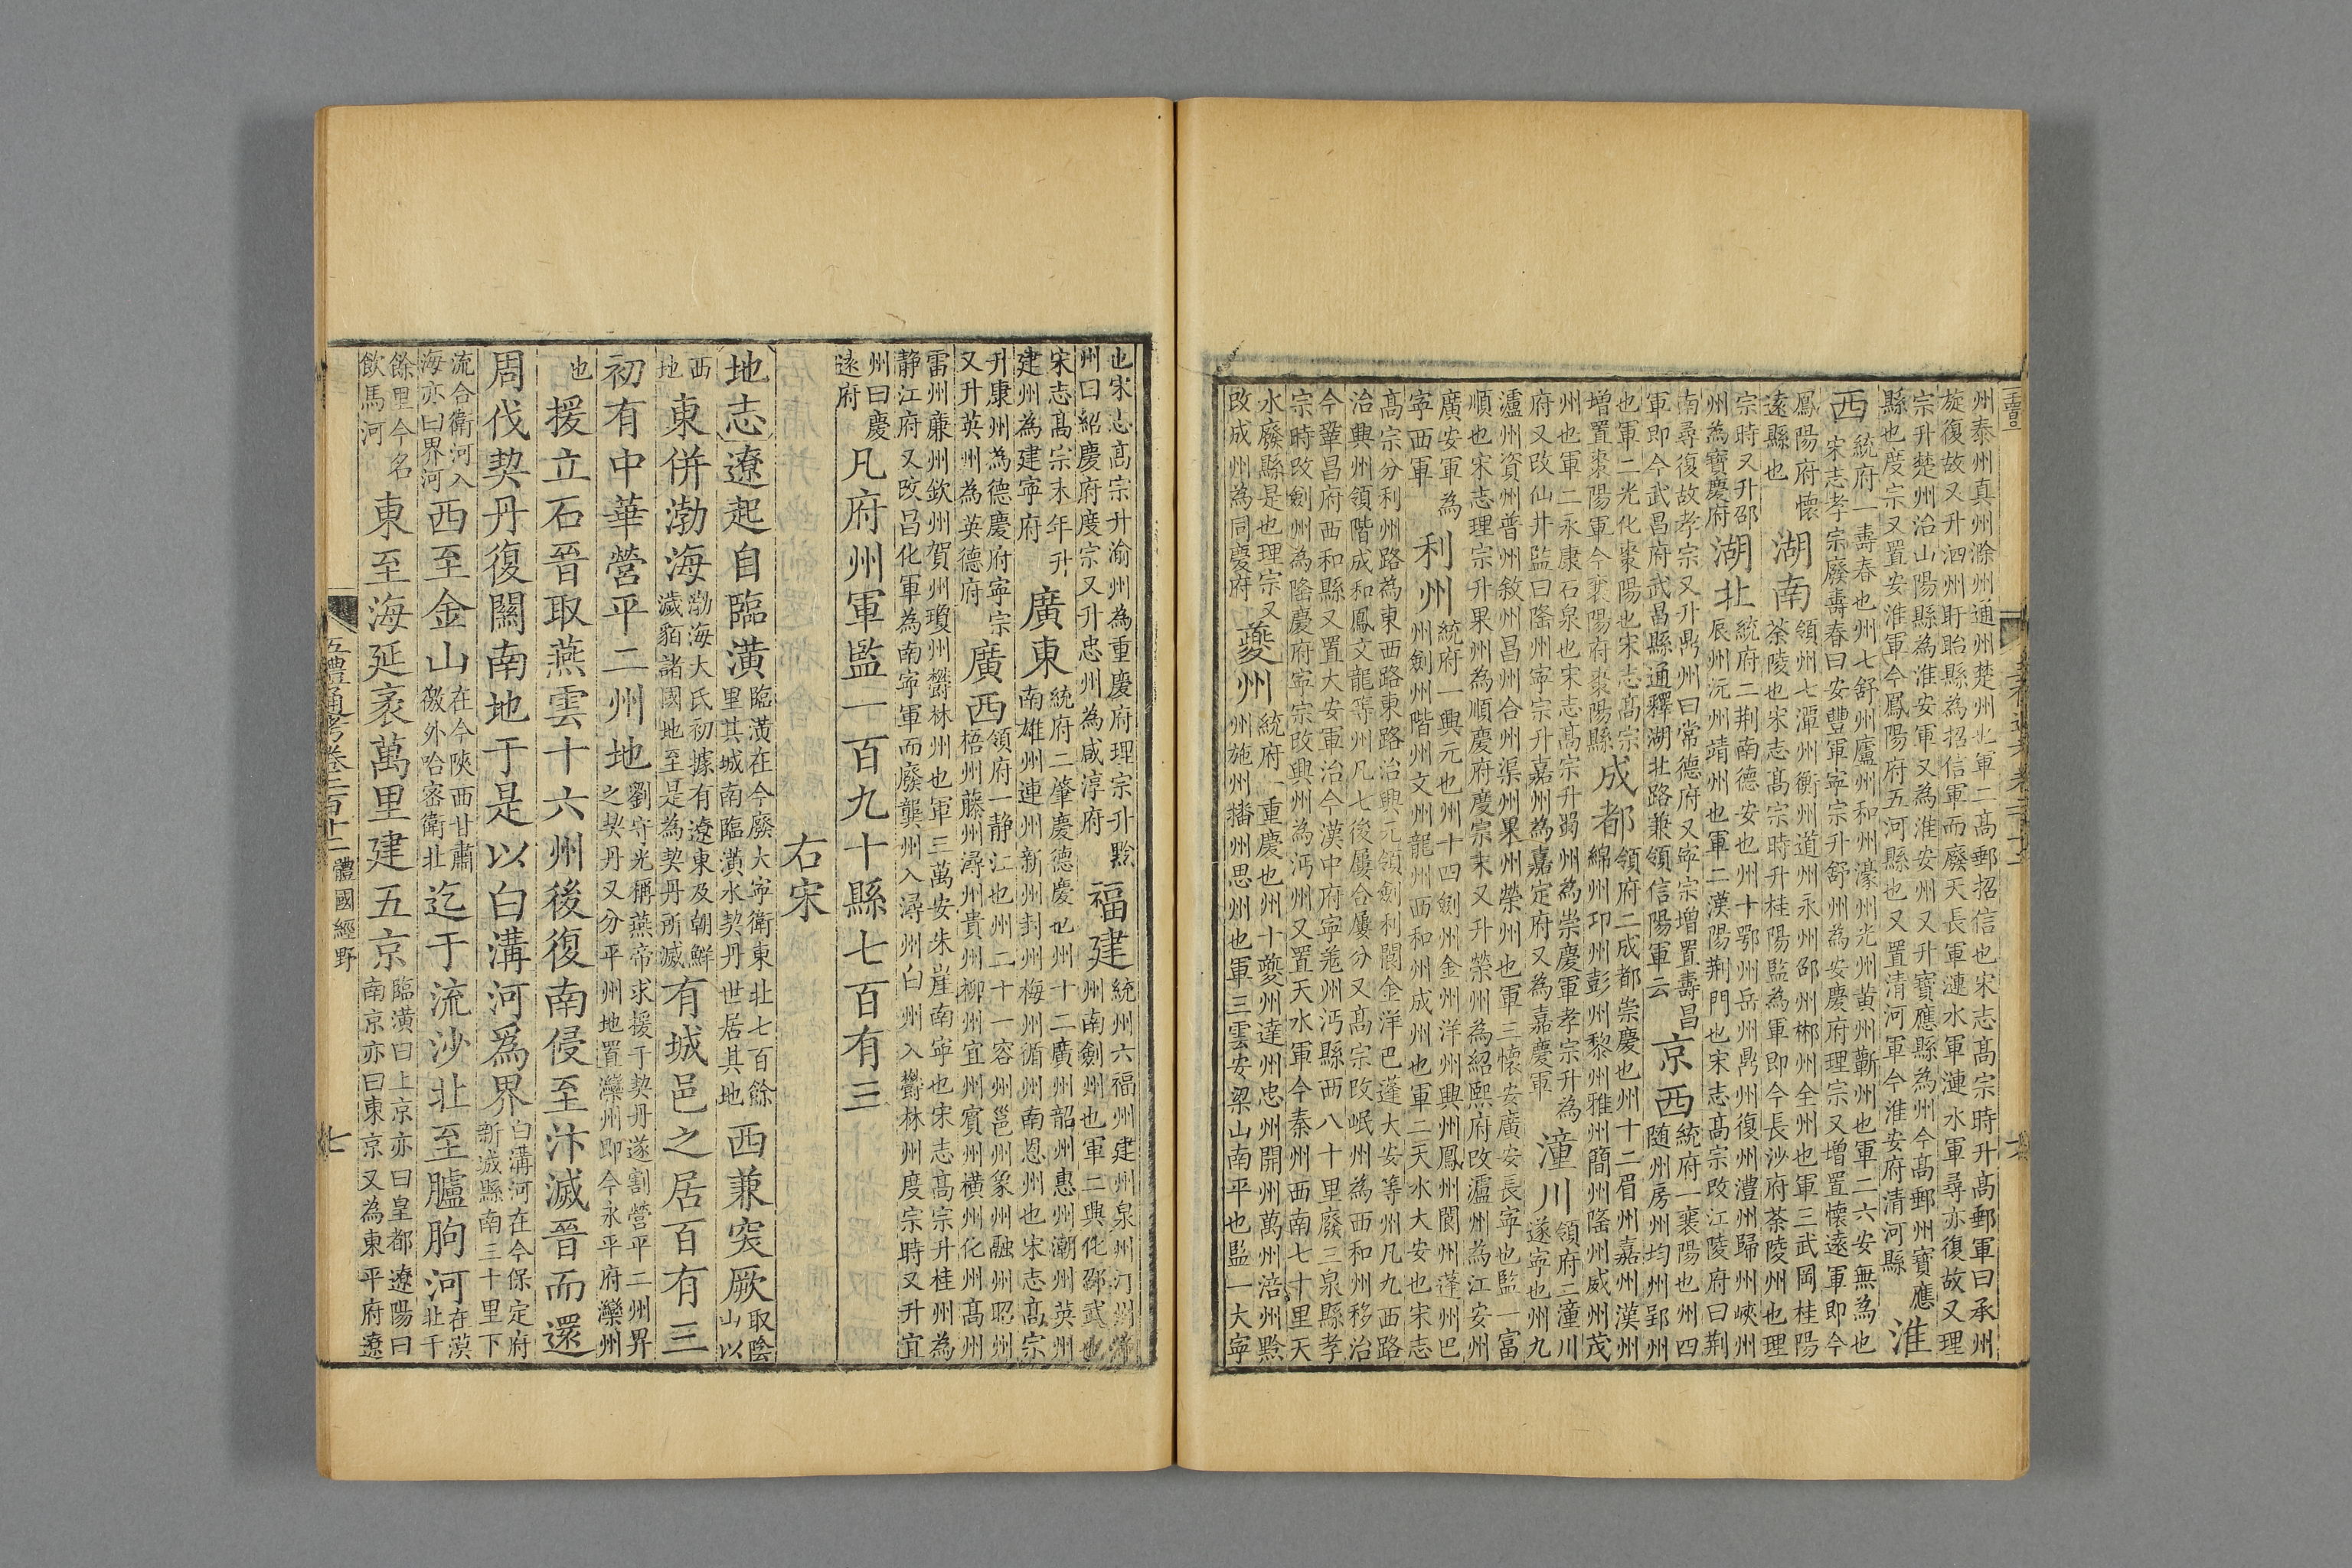 州泰州真州滁州通州楚州也軍二高郵招信也宋志高宗時升高郵軍曰承州
旋復故又升泗州盱眙縣為招信軍而廢天長軍漣水軍漣水軍尋亦復故又理
宗升楚州治山陽縣為淮安軍又為淮安州又升寶應縣為州今高郵州寶應
縣也度宗又置安淮軍今鳳陽府五河縣也又置清河軍今淮安府清河縣
淮
西
統府一壽春也州七舒州廬州和州濠州光州黃州蘄州也軍二六安無為也
宋志孝宗廢壽春曰安豐軍寧宗升舒州為安慶府理宗又增置懷遠軍即今
鳳陽府懷
遠縣也
湖南
領州七潭州衡州道州永州邵州郴州全州也軍三武岡桂陽
茶陵也宋志高宗時升桂陽監為軍即今長沙府茶陵州也理
宗時又升邵
州為寶慶府
湖北
統府二荆南德安也州十鄂州岳州鼎州復州澧州歸州峽州
辰州沅州靖州也軍二漢陽荆門也宋志高宗改江陵府曰荆
南尋復故孝宗又升鼎州曰常德府又寧宗增置壽昌
軍即今武昌府武昌縣通釋湖北路兼領信陽軍云
京西
統府一襄陽也州四
随州房州均州郢州
也軍二光化棗陽也宋志高宗
增置棗陽軍今襄陽府棗陽縣
成都
領府二成都崇慶也州十二眉州嘉州漢州
綿州卭州彭州黎州雅州簡州隆州威州茂
州也軍二永康石泉也宋志高宗升蜀州為崇慶軍孝宗升為
府又改仙井監曰隆州寧宗升嘉州為嘉定府又為嘉慶軍
潼川
領府二潼川
遂寧也州九
瀘州資州普州敘州昌州合州渠州果州榮州也軍三懷安廣安長寧也監一富
順也宋志理宗升果州為順慶府度宗末又升榮州為紹熙府改瀘州為江安州
廣安軍為
寧西軍
利州
統府一興元也州十四劍州金州洋州興州鳳州閬州蓬州巴
州劍州階州文州龍州西和州成州也軍二天水大安也宋志
高宗分利州路為東西路東路治興元領劍利閬金洋巴蓬大安等州凡九西路
治興州領階成和鳳文龍等州凡七後屢合屢分又高宗改岷州為西和州移治
今鞏昌府西和縣又置大安軍治今漢中府寧羗州沔縣西八十里廢三泉縣孝
宗時改劍州為隆慶府寧宗改興州為沔州又置天水軍今秦州西南七十里天
水廢縣是也理宗又
改成州為同慶府
夔州
統府一重慶也州十夔州達州忠州開州萬州涪州黔
州施州播州思州也軍三雲安梁山南平也監一大寧
也宋志高宗升渝州為重慶府理宗升黔
州曰紹慶府度宗又升忠州為咸淳府
福建
統州六福州建州泉州汀州漳
州南劍州也軍二興化邵武也
宋志高宗末年升
建州為建寧府
廣東
統府二肇慶德慶也州十二廣州韶州惠州潮州英州
南雄州連州新州封州梅州循州南恩州也宋志高宗
升康州為德慶府寧宗
又升英州為英德府
廣西
領府一静江也州二十一容州邕州象州融州昭州
梧州藤州潯州貴州柳州宜州賓州橫州化州高州
雷州亷州欽州賀州瓊州欝林州也軍三萬安朱崖南寧也宋志高宗升桂州為
静江府又改昌化軍為南寧軍而廢龔州入潯州白州入欝林州度宗時又升宜
州曰慶
遠府
凡府州軍監一百九十縣七百有三
右宋
地志遼起自臨潢
臨潢在今廢大寧衛東北七百餘
里其城南臨潢水契丹世居其地
西兼突厥
取陰
山以
西
地
東併渤海
渤海大氏初據有遼東及朝鮮
濊貊諸國地至是為契丹所滅
有城邑之居百有三
初有中華營平二州地
劉守光稱燕帝求援于契丹遂割營平二州界
之契丹又分平州地置灤州即今永平府灤州
也
援立石晉取燕雲十六州後復南侵至汴滅晉而還
周伐契丹復關南地于是以白溝河爲界
白溝河在今保定府
新城縣南三十里下
流合衛河入
海亦曰界河
西至金山
在今陝西甘肅
徼外哈密衛北
迄于流沙北至臚朐河
在漠
北千
餘里今名
飲馬河
東至海延袤萬里建五京
臨潢曰上京亦曰皇都遼陽曰
南京亦曰東京又為東平府遼
五禮通考卷二百十二 體國經野
七